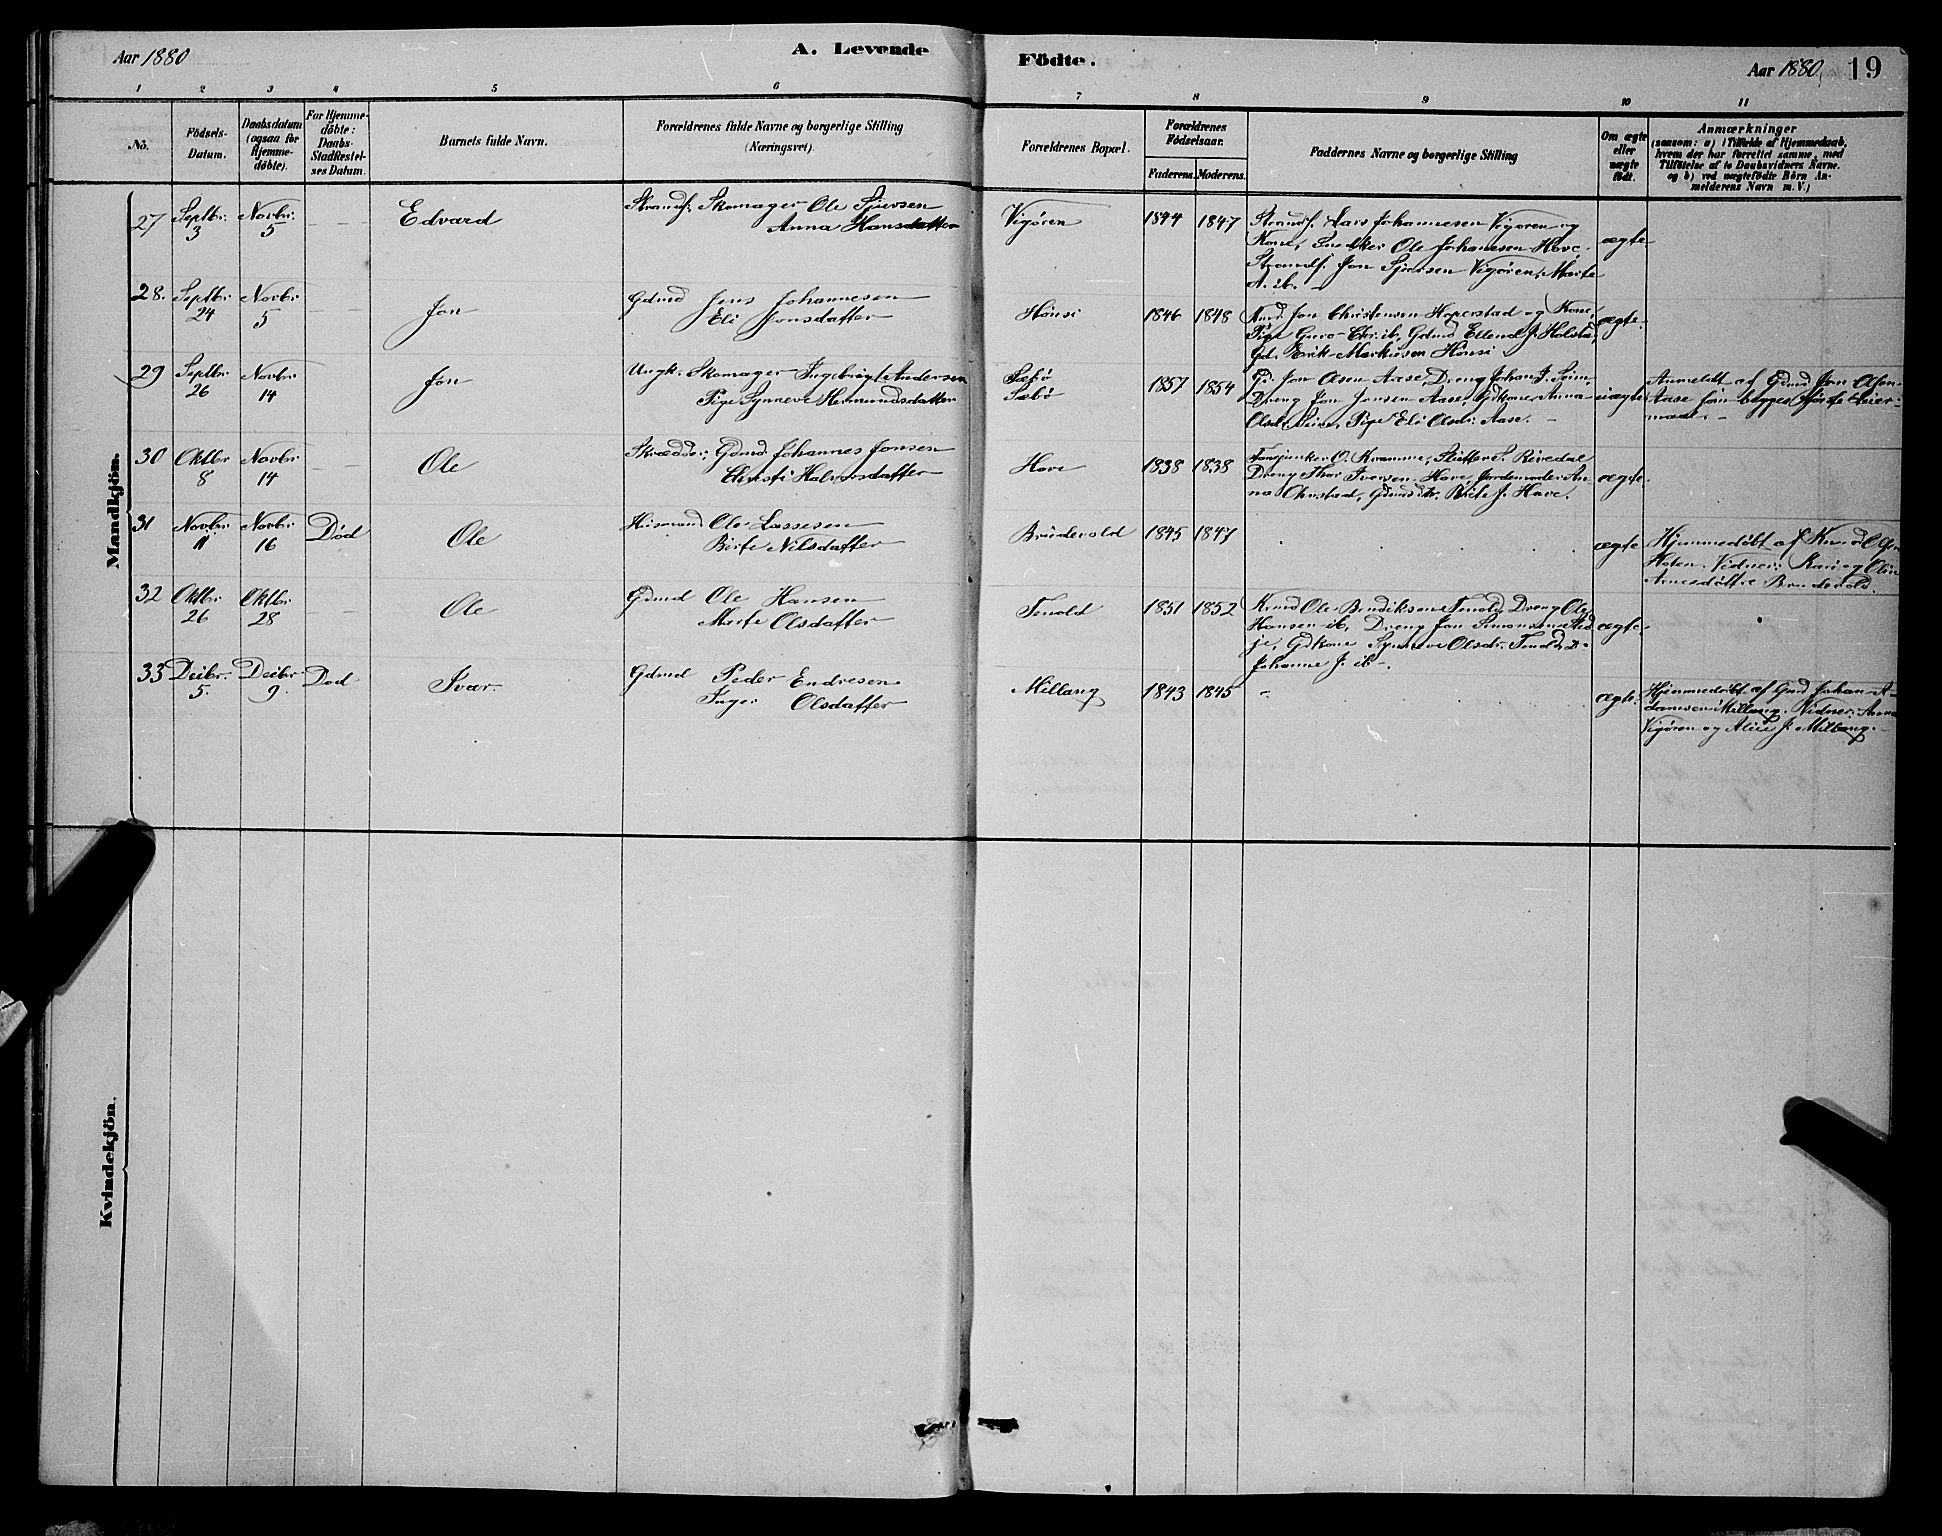 Aar 1880
A. Levende
Födte.
Aar 1880
19
1 2 3 4 5 6 7 8 9 10 11
No.
Födsels-Datum.
Daabsdatum (ogsaa for Hjemme-döbte).
For Hjemme-döbte: Daabs-Stadfæstel-ses Datum.
Barnets fulde Navn.
Forældrenes fulde Navne og borgerlige Stilling (Næringsvei).
Forældrenes Bopæl.
Forældrenes Födselsaar.
Faderens. Moderens.
Faddernes Navne og borgerlige Stilling
Om ægte eller uægte födt.
Anmærkninger
(saasom: a) i Tilfælde af Hjemmedaab,
hvem der har forrettet samme, med
Tilföielse af to Daabsvidners Navne.
og b) ved uægtefödte Börn An-
melderens Navn m. V.)
Mandkjön.
27 Septbr. 3 Novbr. 5 Edvard
Strands. Skomager Ole Sjursen
Anna Hansdatter
Vigøren 1844 1847
Strands. Lars Johannesen Vigøren og
Kone, Snedker Ole Johannesen Hove.
Strands. Jon Sjursen Vigøren, Marte
A. ib.
ægte
28. Septbr 24 Novbr 5 Jon
Gdmd Jens Johannesen
Eli Jonsdatter
Hønsi 1846 1848
Jon Christensen Hoperstad og Kone,
Pige Guro Chr. ib, Gdmd Ellend J. Holstad,
Gd. Erik Markusen Hønsi
ægte.
29 Septbr 26 Novbr 14 Jon
Ungk. Skomager Ingebrigt Andersen
Pige Synneve Hermundsdatter
Sæbø
Sæbø
1857 1854
Gd. Jon Olsen Aase, Dreng Johan J. Seim,
Dreng Jon Jonsen Aase, Gdkone Anna
Olsdr. Seim, Pige Eli Olsdr. Aase.
uægte
Anmeldt af Gdmd Jon Olsen
Aase som begges første Leier-
maal.
30 Oktbr 8 Novbr 14 Ole
Skrædder, Gdmd Johannes Jonsen
Christi Halvorsdatter
Hove 1838 1838
O. Kramme, S. Rivedal
Dreng Thor Iversen Hove, Jordemoder An-
na Ohnstad, Brite J. Hove.
ægte
31 Novbr. 11 Novbr 16 Død Ole
Husmand Ole Lassesen
Birte Nilsdatter
Brudevold 1845 1847
ægte
Hjemmedøbt af Knud Olsen
Hoten. Vidner: Kari og Olin
Arnesdøttre Brudevold.
32 Oktbr. 26 Oktbr. 28 Ole
Gdmd Ole Hansen
Marte Olsdatter
Tenold 1851 1852
Ole Bendiksen Tenold, Dreng Ole
Hansen ib, Dreng Jon Simonsen Sted
je, Gdkone Synneve Olsdr. Tenold,
Johanne J. ib.
ægte
33 Decbr. 5. Decbr 9. Død Ivar.
Gdmd Peder Endresen
Inger Olsdatter
Millang 1843 1845
ægte.
Hjemmedøbt af Gmd Johan A-
damsen Millang. Vidner: Anna
Vigøren og Alice J. Millang.
Kvindekjön.